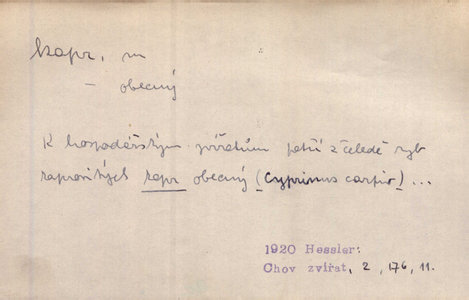 kapr, m
– obecný
K hospodářským zvířatům patří z čeledě ryb
kaprovitých kapr obecný (Cyprinus carpio) ...
1920 Hessler:
Chov zvířat, 2, 176, 11.